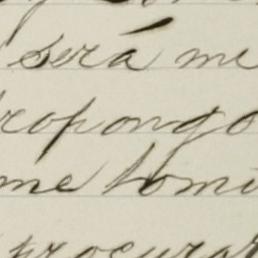 será me
ropongo
me tomi
procurar